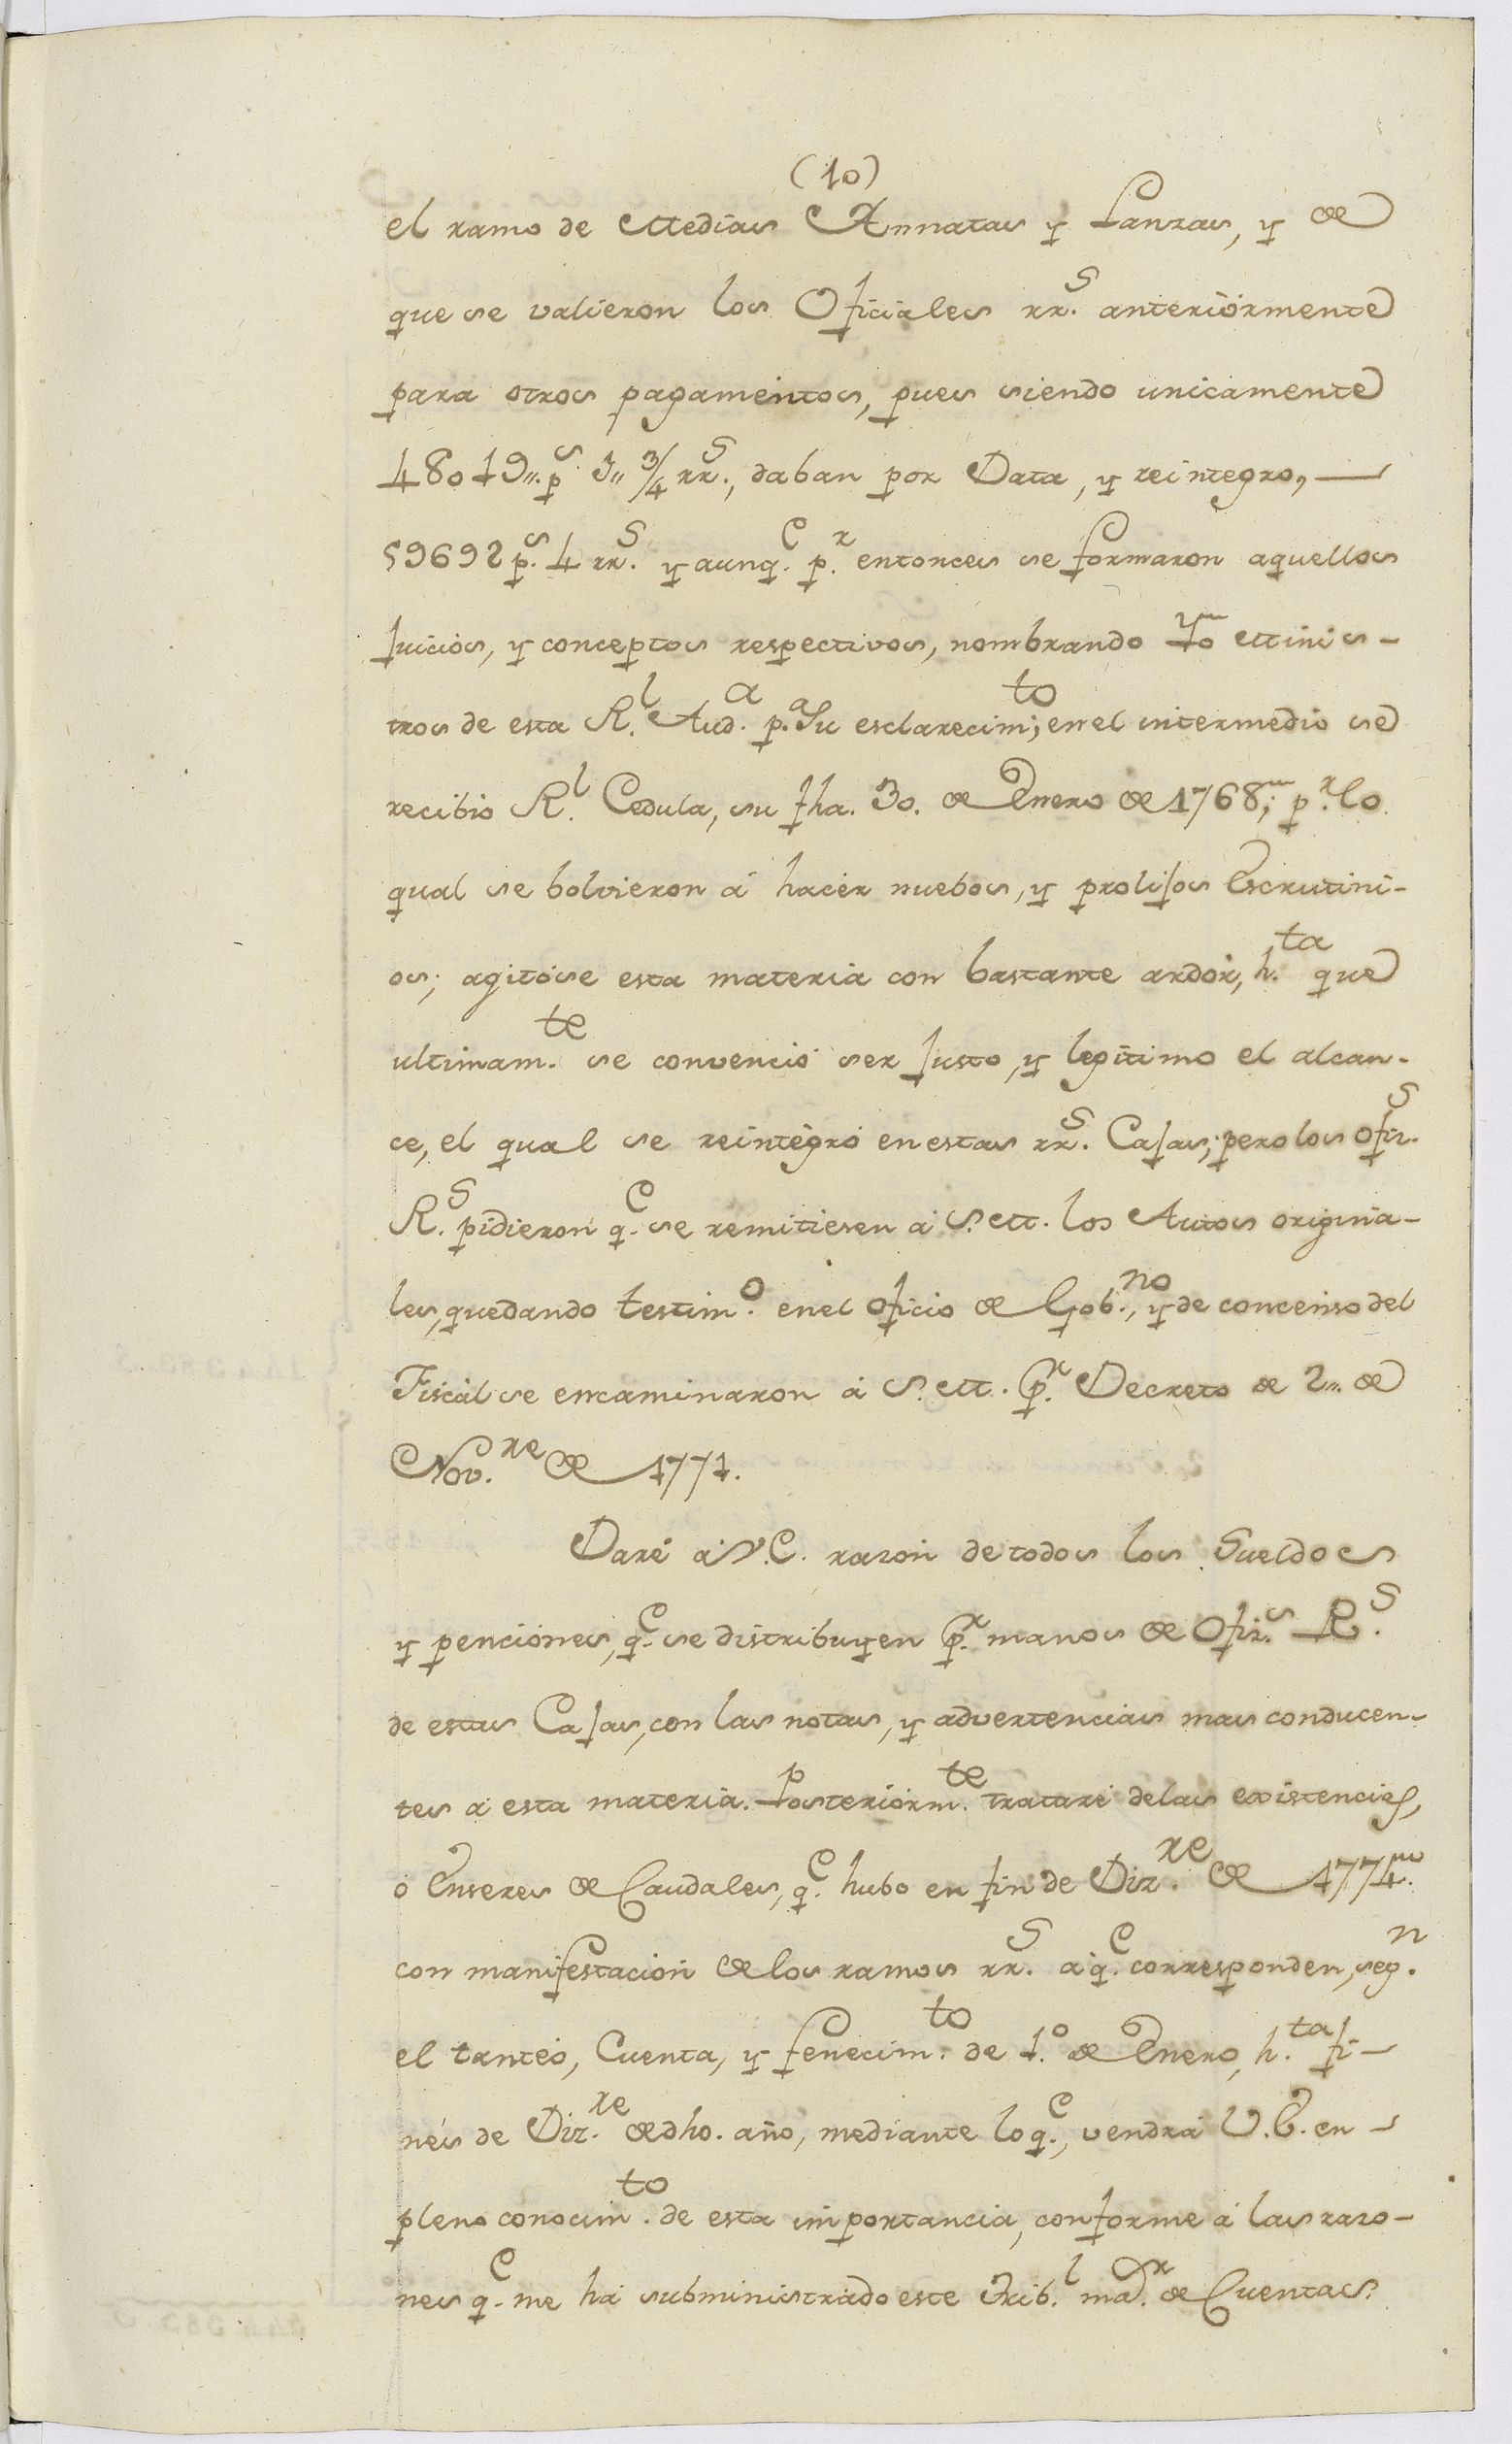 (10)
el ramo de Medias Annatas y Lanzas, y de
que se valieron los Oficiales rr.s anteriormente
para otros pagamentos, pues siendo unicamente
48019,, p.s 3,, 3/4 rr.s, daban por Data, y reintegro, —
59692 p.s 4 rr.s y aunq.e p.r entonces se formaron aquellos
Juicios, y conceptos respectivos, nombrando Yo Minis-
tros de esta R.l Aud.a p.a Su esclarecim.to; en el intermedio se
recibio R.l Cedula, su fha. 30. de Enero de 1768,,; p.r lo
qual se bolvieron á hacer nuebos, y prolijos Escrutini-
os; agitóse esta materia con bastante ardor, h.ta que
ultimam.te se convenció ser Justo, y legitimo el alcan-
ce, el qual se reintegró en estas rr.s Cajas; pero los ofiz.s
R.s pidieron q.e se remitiesen á S. M. los Autos origina-
les, quedando testim.o en el oficio de Gob.no, y de concenso del
Fiscál se encaminaron á S. M. p.r Decreto de 2,, de
Nov.re de 1771.
Daré á V. E. razon de todos los Sueldos
y penciones, q.e se distribuyen p.r manos de Ofiz.s R.s
de estas Cajas, con las notas, y advertencias mas conducen-
tes á esta materia. Posteriorm.te trataré de las existencias,
ó Enseres de Caudales, q.e hubo en fin de Diz.re de 1774,,
con manifestacion de los ramos rr.s á q.e corresponden, seg.n
el tantéo, Cuenta, y fenecim.to de 1.o de Enero, h.ta fi-
nes de Diz.re de dho. año, mediante lo q.e, vendrá V. E. en -
pleno conocim.to de esta importancia, conforme á las razo-
nes q.e me há subministrado este Trib.l ma.r de Cuentas.